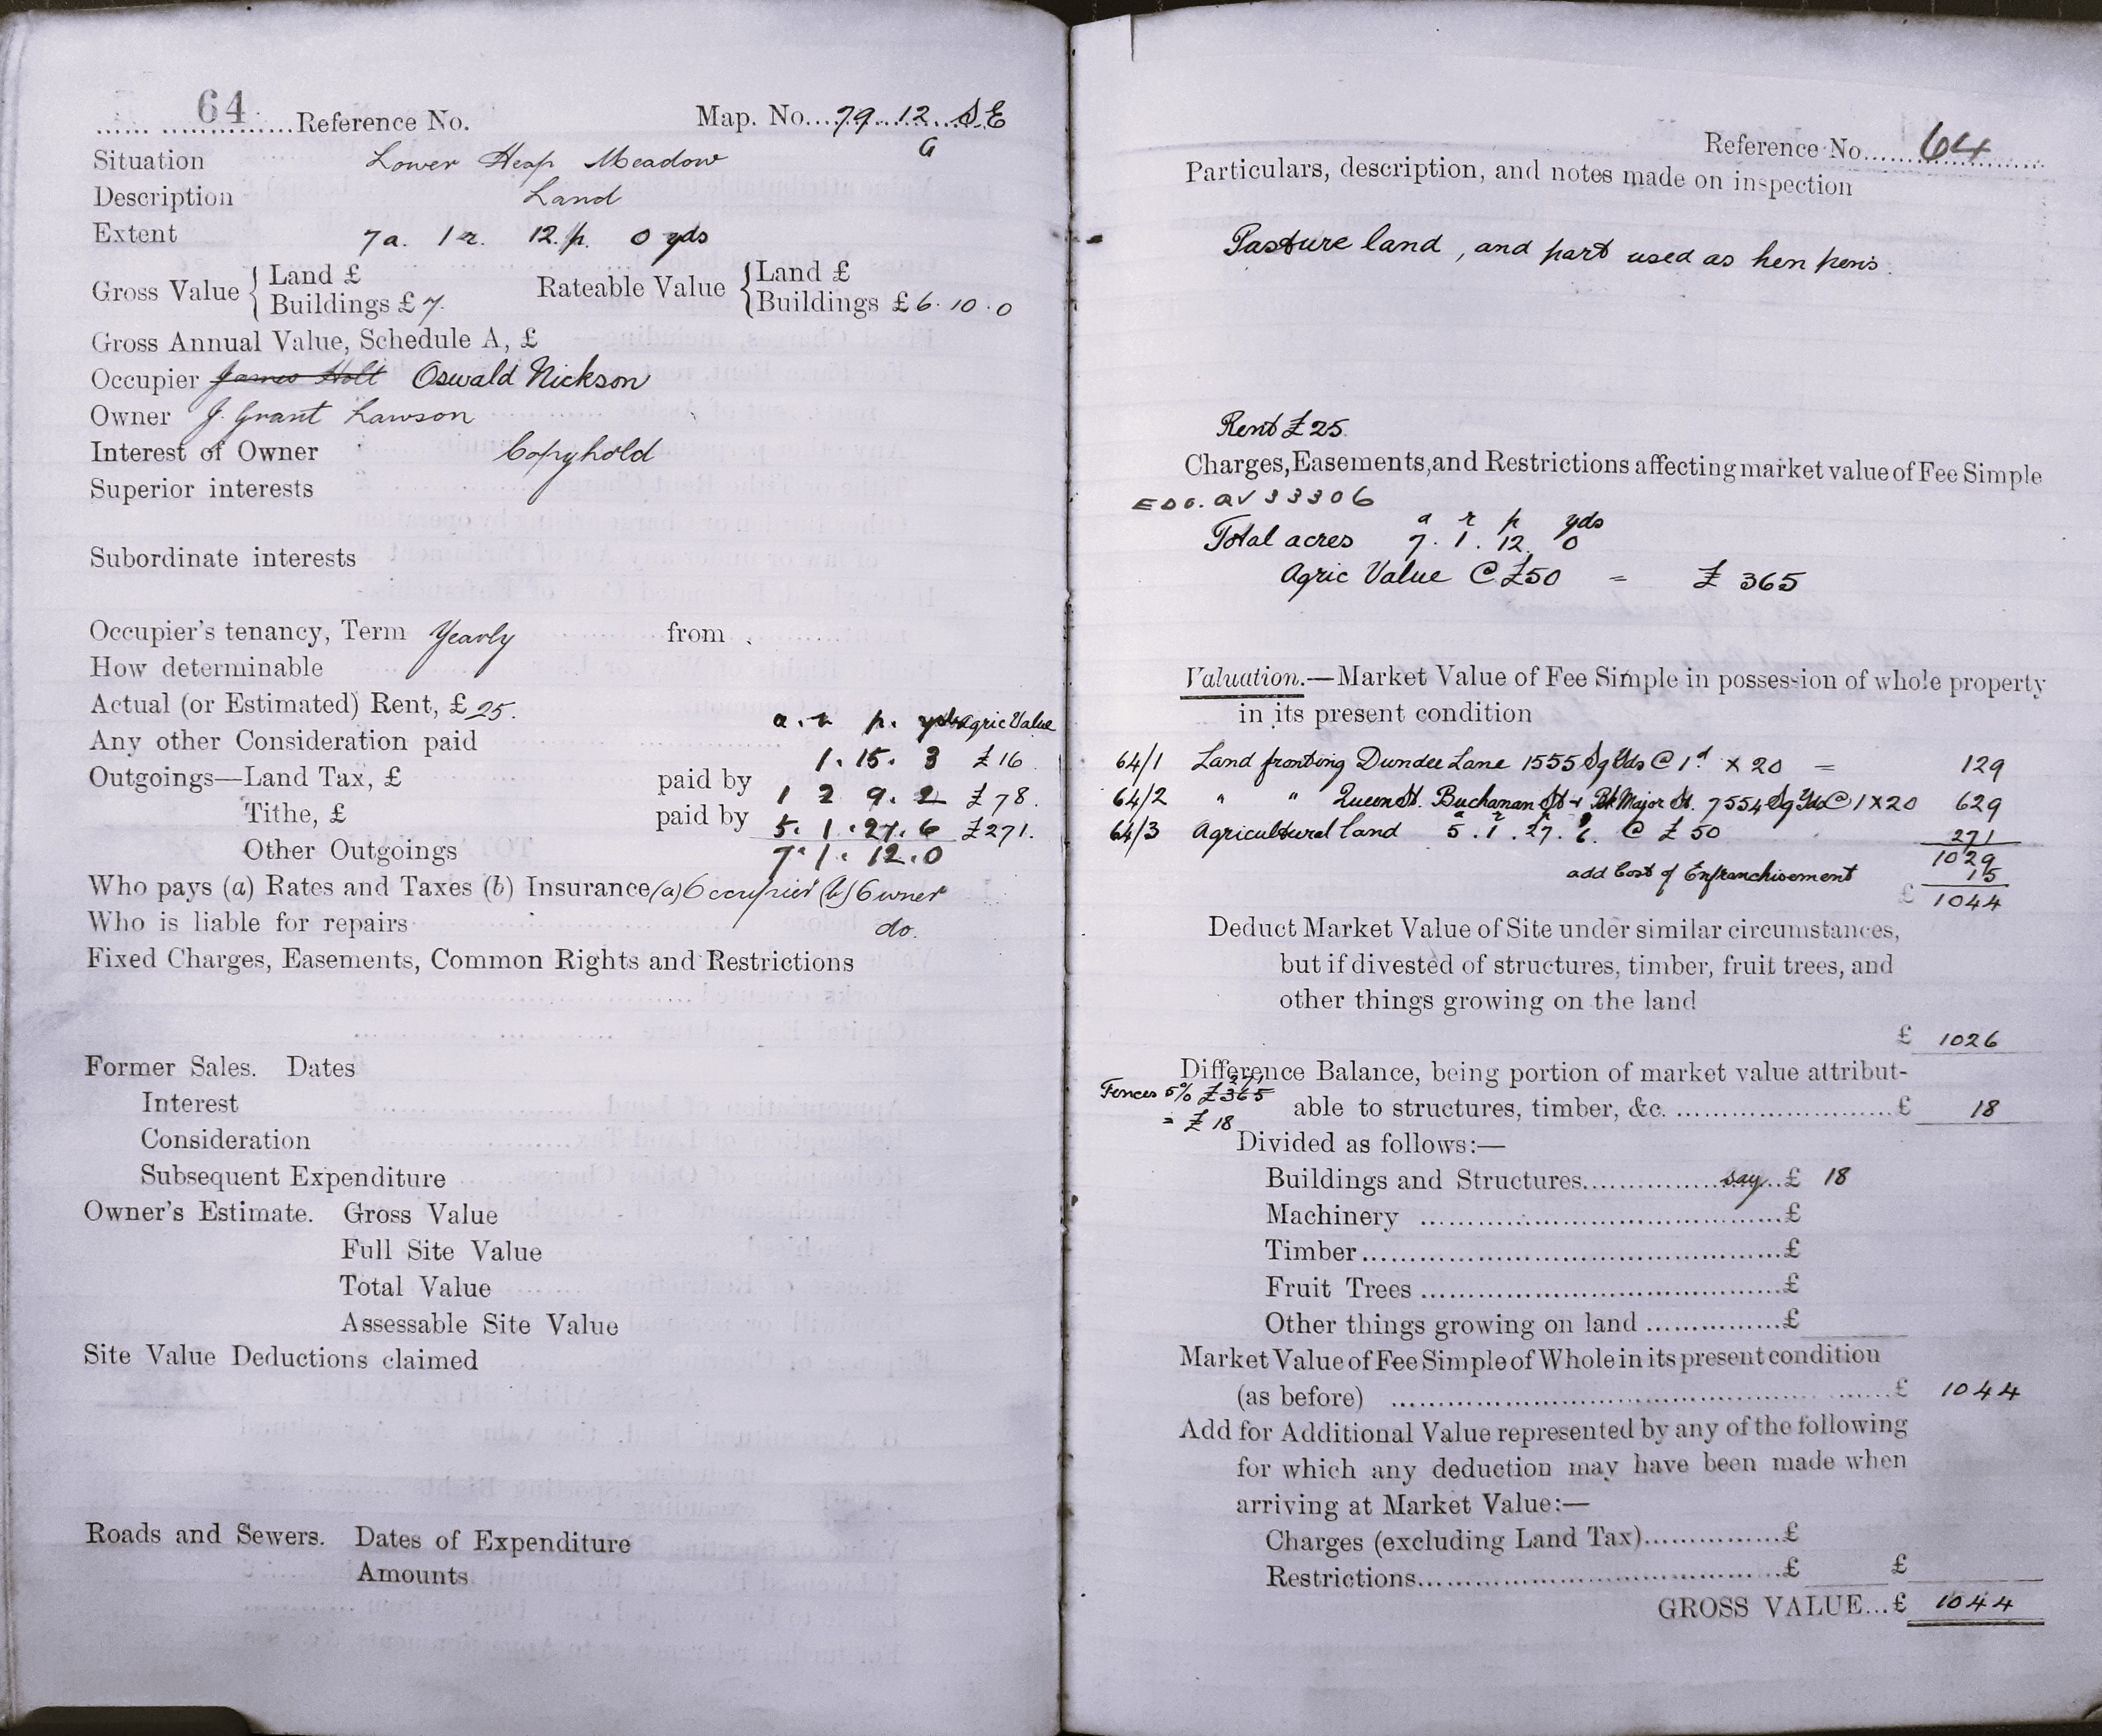 64 Reference No. Map. No. 79. 12. S E
G
Situation Lower Heap Meadow
Description Land
Extent 7a. 1r. 12.p. 0 yds
Gross Value { Land £ Rateable Value { Land £
Buildings £ 7. Buildings £ 6. 10. 0
Gross Annual Value, Schedule A, £
Occupier James Holt Oswald Nickson
Owner J. Grant Lawson
Interest of Owner Copyhold
Superior interests
Subordinate interests
Occupier's tenancy, Term Yearly from
How determinable
Actual (or Estimated) Rent, £ 25.
a. r. p. yds Agric Value
Any other Consideration paid
1. 15. 3 £16.
Outgoings—Land Tax, £ paid by
1 2 9. 2 £78.
Tithe, £ paid by
5. 1. 27. 6 £271.
Other Outgoings 7. 1. 12. 0
Who pays (a) Rates and Taxes (b) Insurance (a) Occupier (b) Owner
Who is liable for repairs do.
Fixed Charges, Easements, Common Rights and Restrictions
Former Sales. Dates
Interest
Consideration
Subsequent Expenditure
Owner's Estimate. Gross Value
Full Site Value
Total Value
Assessable Site Value
Site Value Deductions claimed
Roads and Sewers. Dates of Expenditure
Amounts
Reference No. 64
Particulars, description, and notes made on inspection
Pasture land, and part used as hen pens.
Rent £25.
Charges, Easements, and Restrictions affecting market value of Fee Simple
33306
a r p yds
Total acres 7. 1. 12. 0
Agric Value @ £50 = £ 365
Valuation.—Market Value of Fee Simple in possession of whole property
in its present condition
64/1 Land fronting Dundee Lane 1555 Sq Yds @ 1d × 20 = 129
64/2 " " Queen St. Buchanan St + Bk Major St. 7554 Sq Yds @ 1 × 20 629
64/3 Agricultural land 5. 1. 27. 6. @ £50 271
1029
add Cost of Enfranchisement 15
£ 1044
Deduct Market Value of Site under similar circumstances,
but if divested of structures, timber, fruit trees, and
other things growing on the land
£ 1026
Difference Balance, being portion of market value attribut-
271
Fences 5% £365
able to structures, timber, &c. £ 18
= £18
Divided as follows:—
Buildings and Structures say £ 18
Machinery £
Timber £
Fruit Trees £
Other things growing on land £
Market Value of Fee Simple of Whole in its present condition
(as before) £ 1044
Add for Additional Value represented by any of the following
for which any deduction may have been made when
arriving at Market Value:—
Charges (excluding Land Tax) £
Restrictions £ £
GROSS VALUE... £ 1044